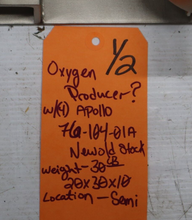 1/2
Oxygen
Producer?
w/(4) Apollo
76a-104-01A
New old Stock
weight - 30 LB
20x30x10
Location - Semi